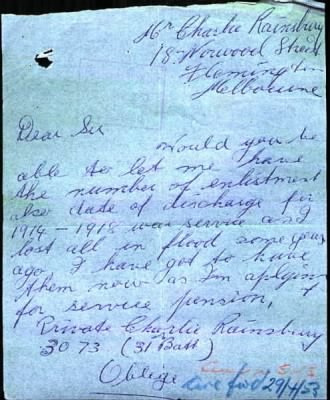 Mr Charlie Rainsbury
18 Norwood Street
Flemington
Melbourne
Dear Sir
Would you be
able to let me have
the number of enlistment
also date of discharge for
1914-1918 war service and
lost all in flood some years
ago. I have got to have
them now as I'm aplying
for service pension,
Private Charlie Rainsbury
3073 (31 Batt)
Oblige
fwd 29/4/53